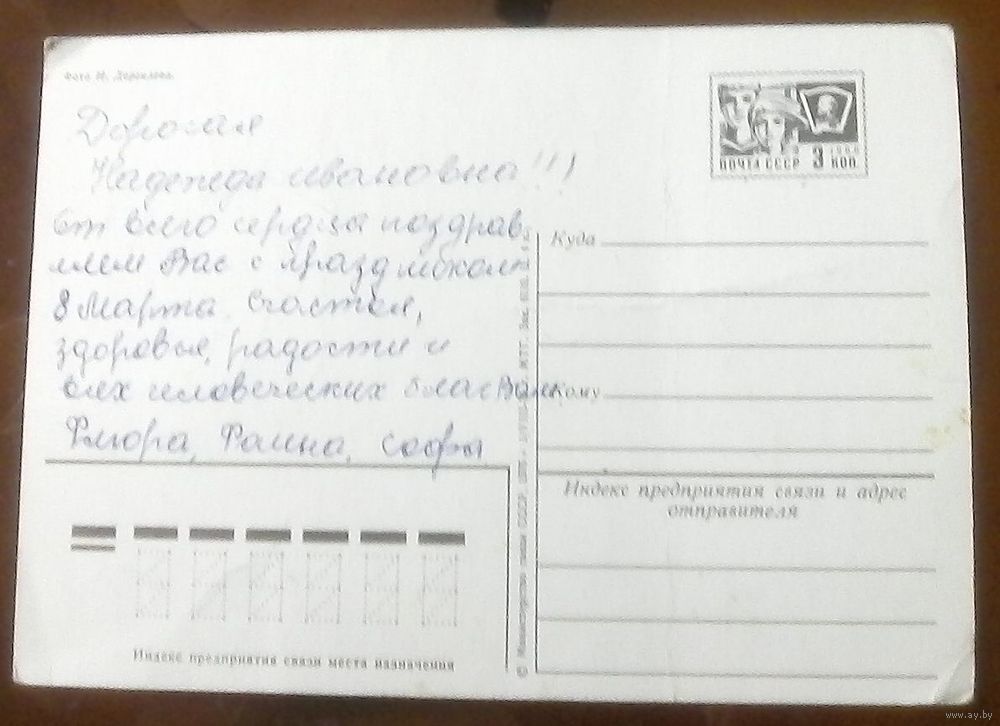 Фото И.
Дорогая
Надежда ивановна!!!
От всего сердцы поздрав
ляем Вас с праздником
8 Марта. Счастья,
здоровья, радости и
всех человеческих благ Вам
Флюра, Фаина, Софья
ПОЧТА СССР 3 КОП
1966
Куда
Кому
Индекс предприятия связи и адрес
отправителя
© Министерство связи СССР
МТГ. Зак.
Индекс предприятия связи места назначения
www.ay.by